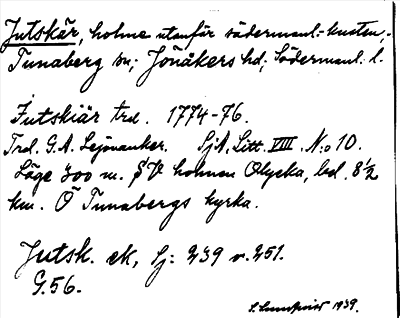 Jutskär, holme utanför södermanl.-kusten,
Tunaberg sn; Jönåkers hd; Södermanl. l.
Jutskiär trd. 1774-76.
Trol. G.A. Lejonanker. SjA, Litt. VIII. N:o 10.
Läge 300 m. SV holmen Olycka, bel. 8½
km. Ö Tunabergs kyrka.
Jutsk. ek, Sj: 239 v. 251.
G.56.
S. Lundqvist 1939.